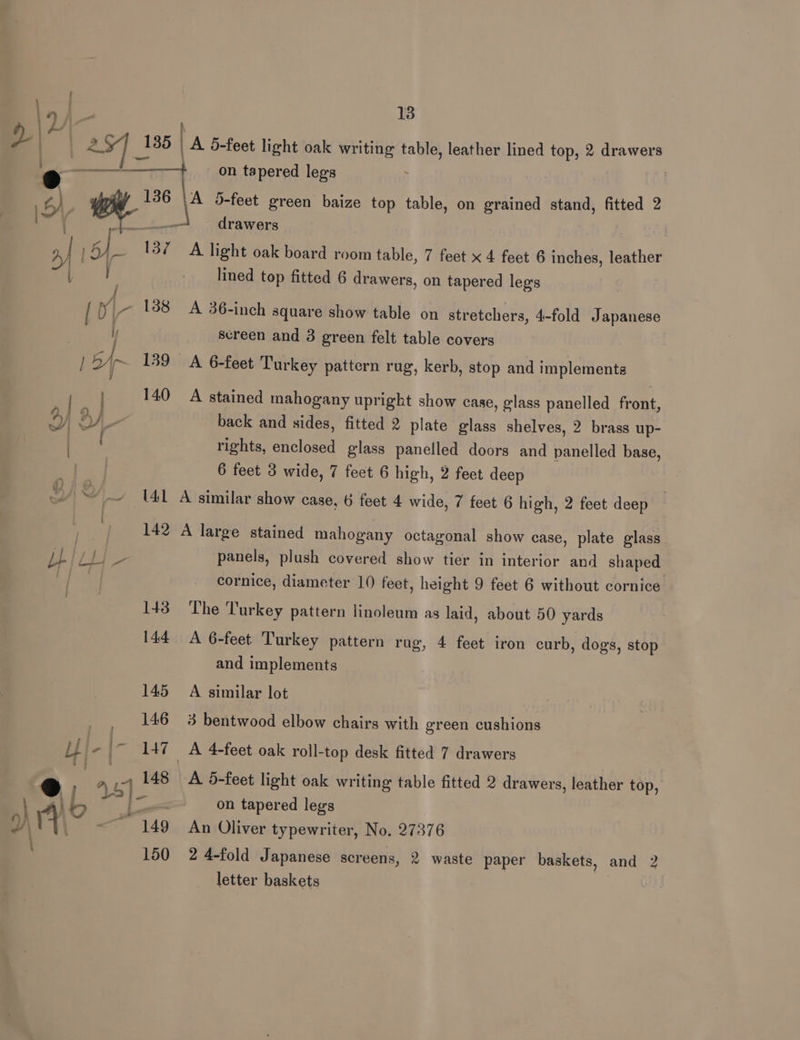 13
135 A 5-feet light oak writing table, leather lined top, 2 drawers
on tapered legs
136 A 5-feet green baize top table, on grained stand, fitted 2
drawers
137 A light oak board room table, 7 feet x 4 feet 6 inches, leather
lined top fitted 6 drawers, on tapered legs
138 A 36-inch square show table on stretchers, 4-fold Japanese
screen and 3 green felt table covers
139 A 6-feet Turkey pattern rug, kerb, stop and implements
140 A stained mahogany upright show case, glass panelled front,
back and sides, fitted 2 plate glass shelves, 2 brass up-
rights, enclosed glass panelled doors and panelled base,
6 feet 3 wide, 7 feet 6 high, 2 feet deep
141 A similar show case, 6 feet 4 wide, 7 feet 6 high, 2 feet deep
142 A large stained mahogany octagonal show case, plate glass
panels, plush covered show tier in interior and shaped
cornice, diameter 10 feet, height 9 feet 6 without cornice
143 The Turkey pattern linoleum as laid, about 50 yards
144 A 6-feet Turkey pattern rug, 4 feet iron curb, dogs, stop
and implements
145 A similar lot
146 3 bentwood elbow chairs with green cushions
147 A 4-feet oak roll-top desk fitted 7 drawers
148 A 5-feet light oak writing table fitted 2 drawers, leather top,
on tapered legs
149 An Oliver typewriter, No. 27376
150 2 4-fold Japanese screens, 2 waste paper baskets, and 2
letter baskets